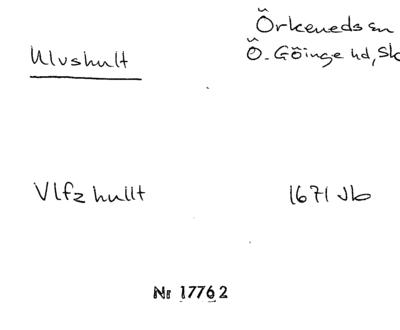 Örkeneds sn
Ulvshult Ö. Göinge hd, Sk
Vlfz hullt 1671 Jb
Nr 17762